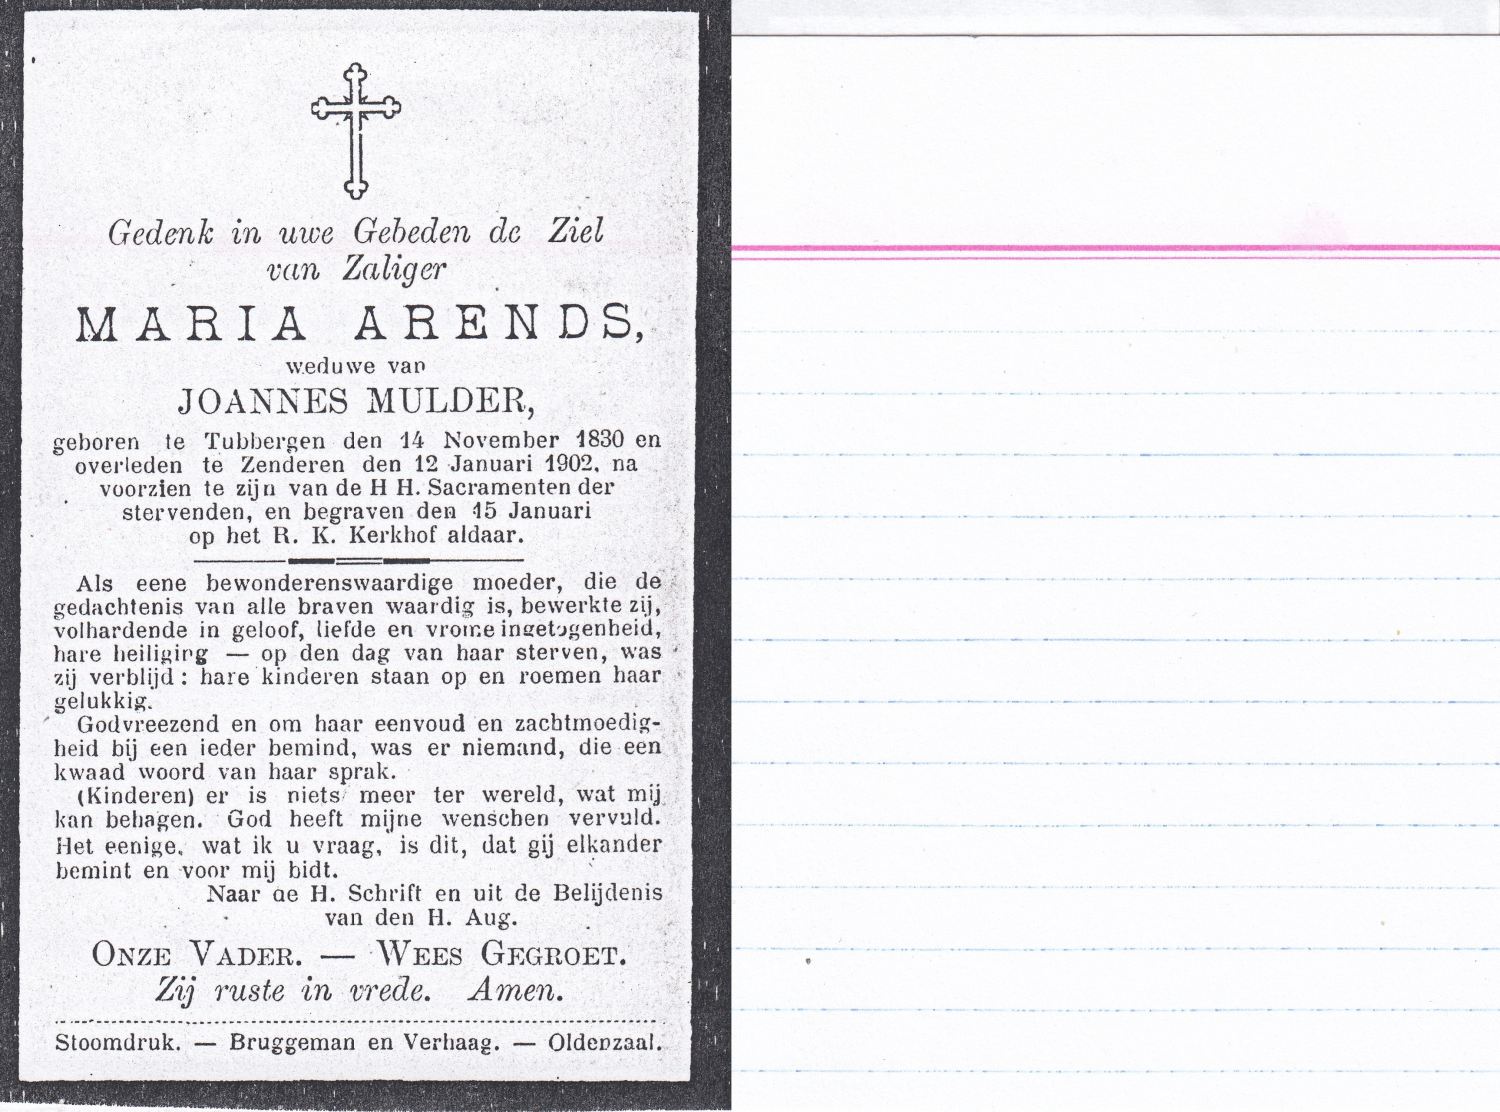 Gedenk in uwe Gebeden de Ziel
van Zaliger
MARIA ARENDS,
weduwe van
JOANNES MULDER,
geboren te Tubbergen den 14 November 1830 en
overleden te Zenderen den 12 Januari 1902, na
voorzien te zijn van de H H. Sacramenten der
stervenden, en begraven den 15 Januari
op het R. K. Kerkhof aldaar.
Als eene bewonderenswaardige moeder, die de
gedachtenis van alle braven waardig is, bewerkte zij,
volhardende in geloof, liefde en vrome ingetogenheid,
hare heiliging — op den dag van haar sterven, was
zij verblijd: hare kinderen staan op en roemen haar
gelukkig.
Godvreezend en om haar eenvoud en zachtmoedig-
heid bij een ieder bemind, was er niemand, die een
kwaad woord van haar sprak.
(Kinderen) er is niets meer ter wereld, wat mij
kan behagen. God heeft mijne wenschen vervuld.
Het eenige, wat ik u vraag, is dit, dat gij elkander
bemint en voor mij bidt.
Naar de H. Schrift en uit de Belijdenis
van den H. Aug.
ONZE VADER. — WEES GEGROET.
Zij ruste in vrede. Amen.
Stoomdruk. — Bruggeman en Verhaag. — Oldenzaal.